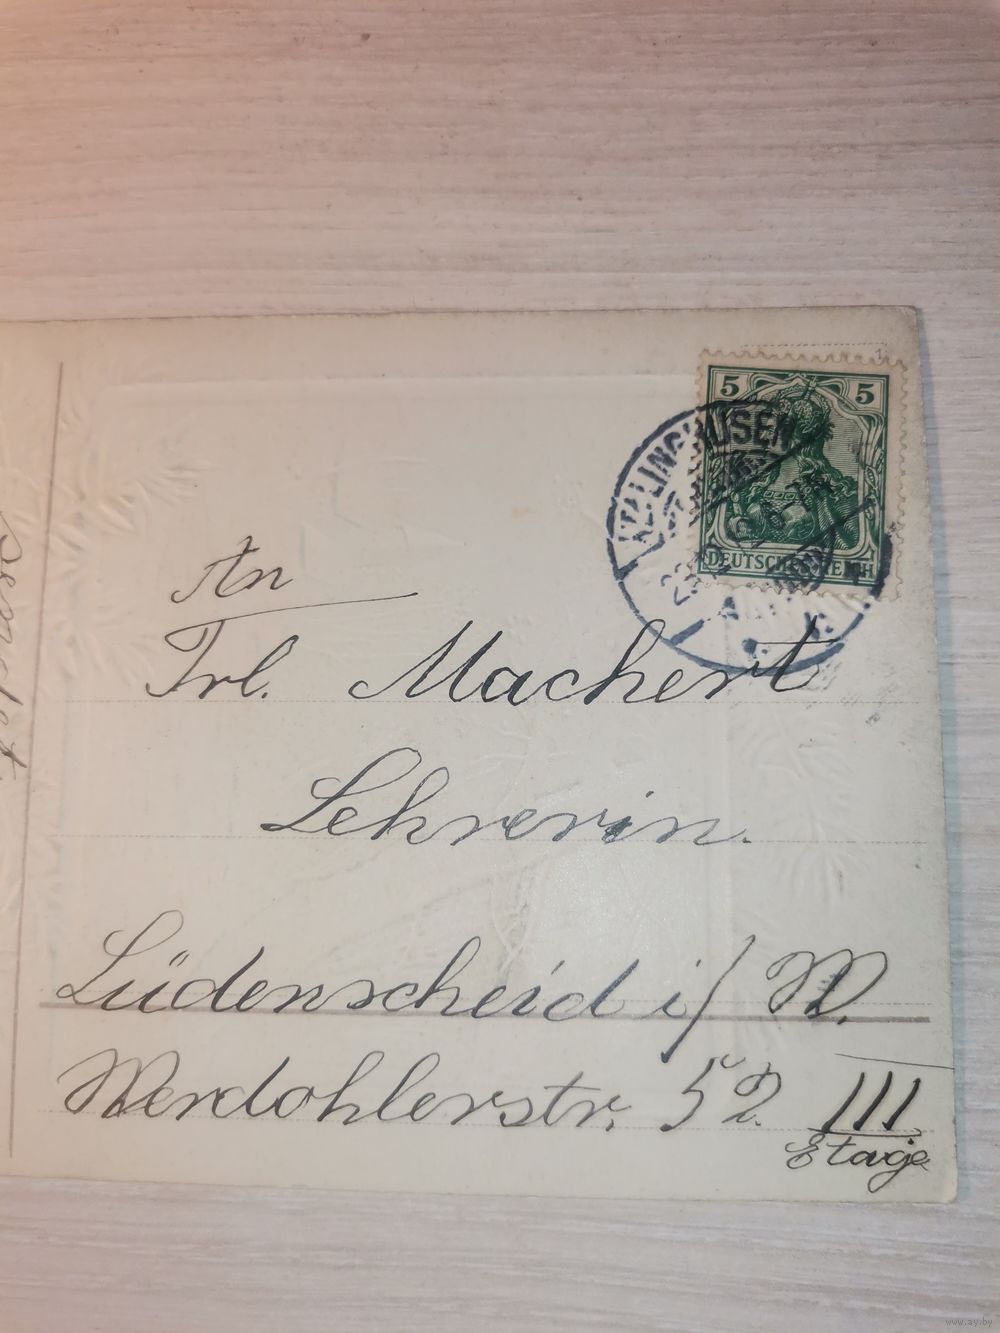 5 5
DEUTSCHES REICH
An
Frl. Machert
Lehrerin.
Lüdenscheid i/W.
Werdohlerstr. 52. III
Etage
www.ay.by